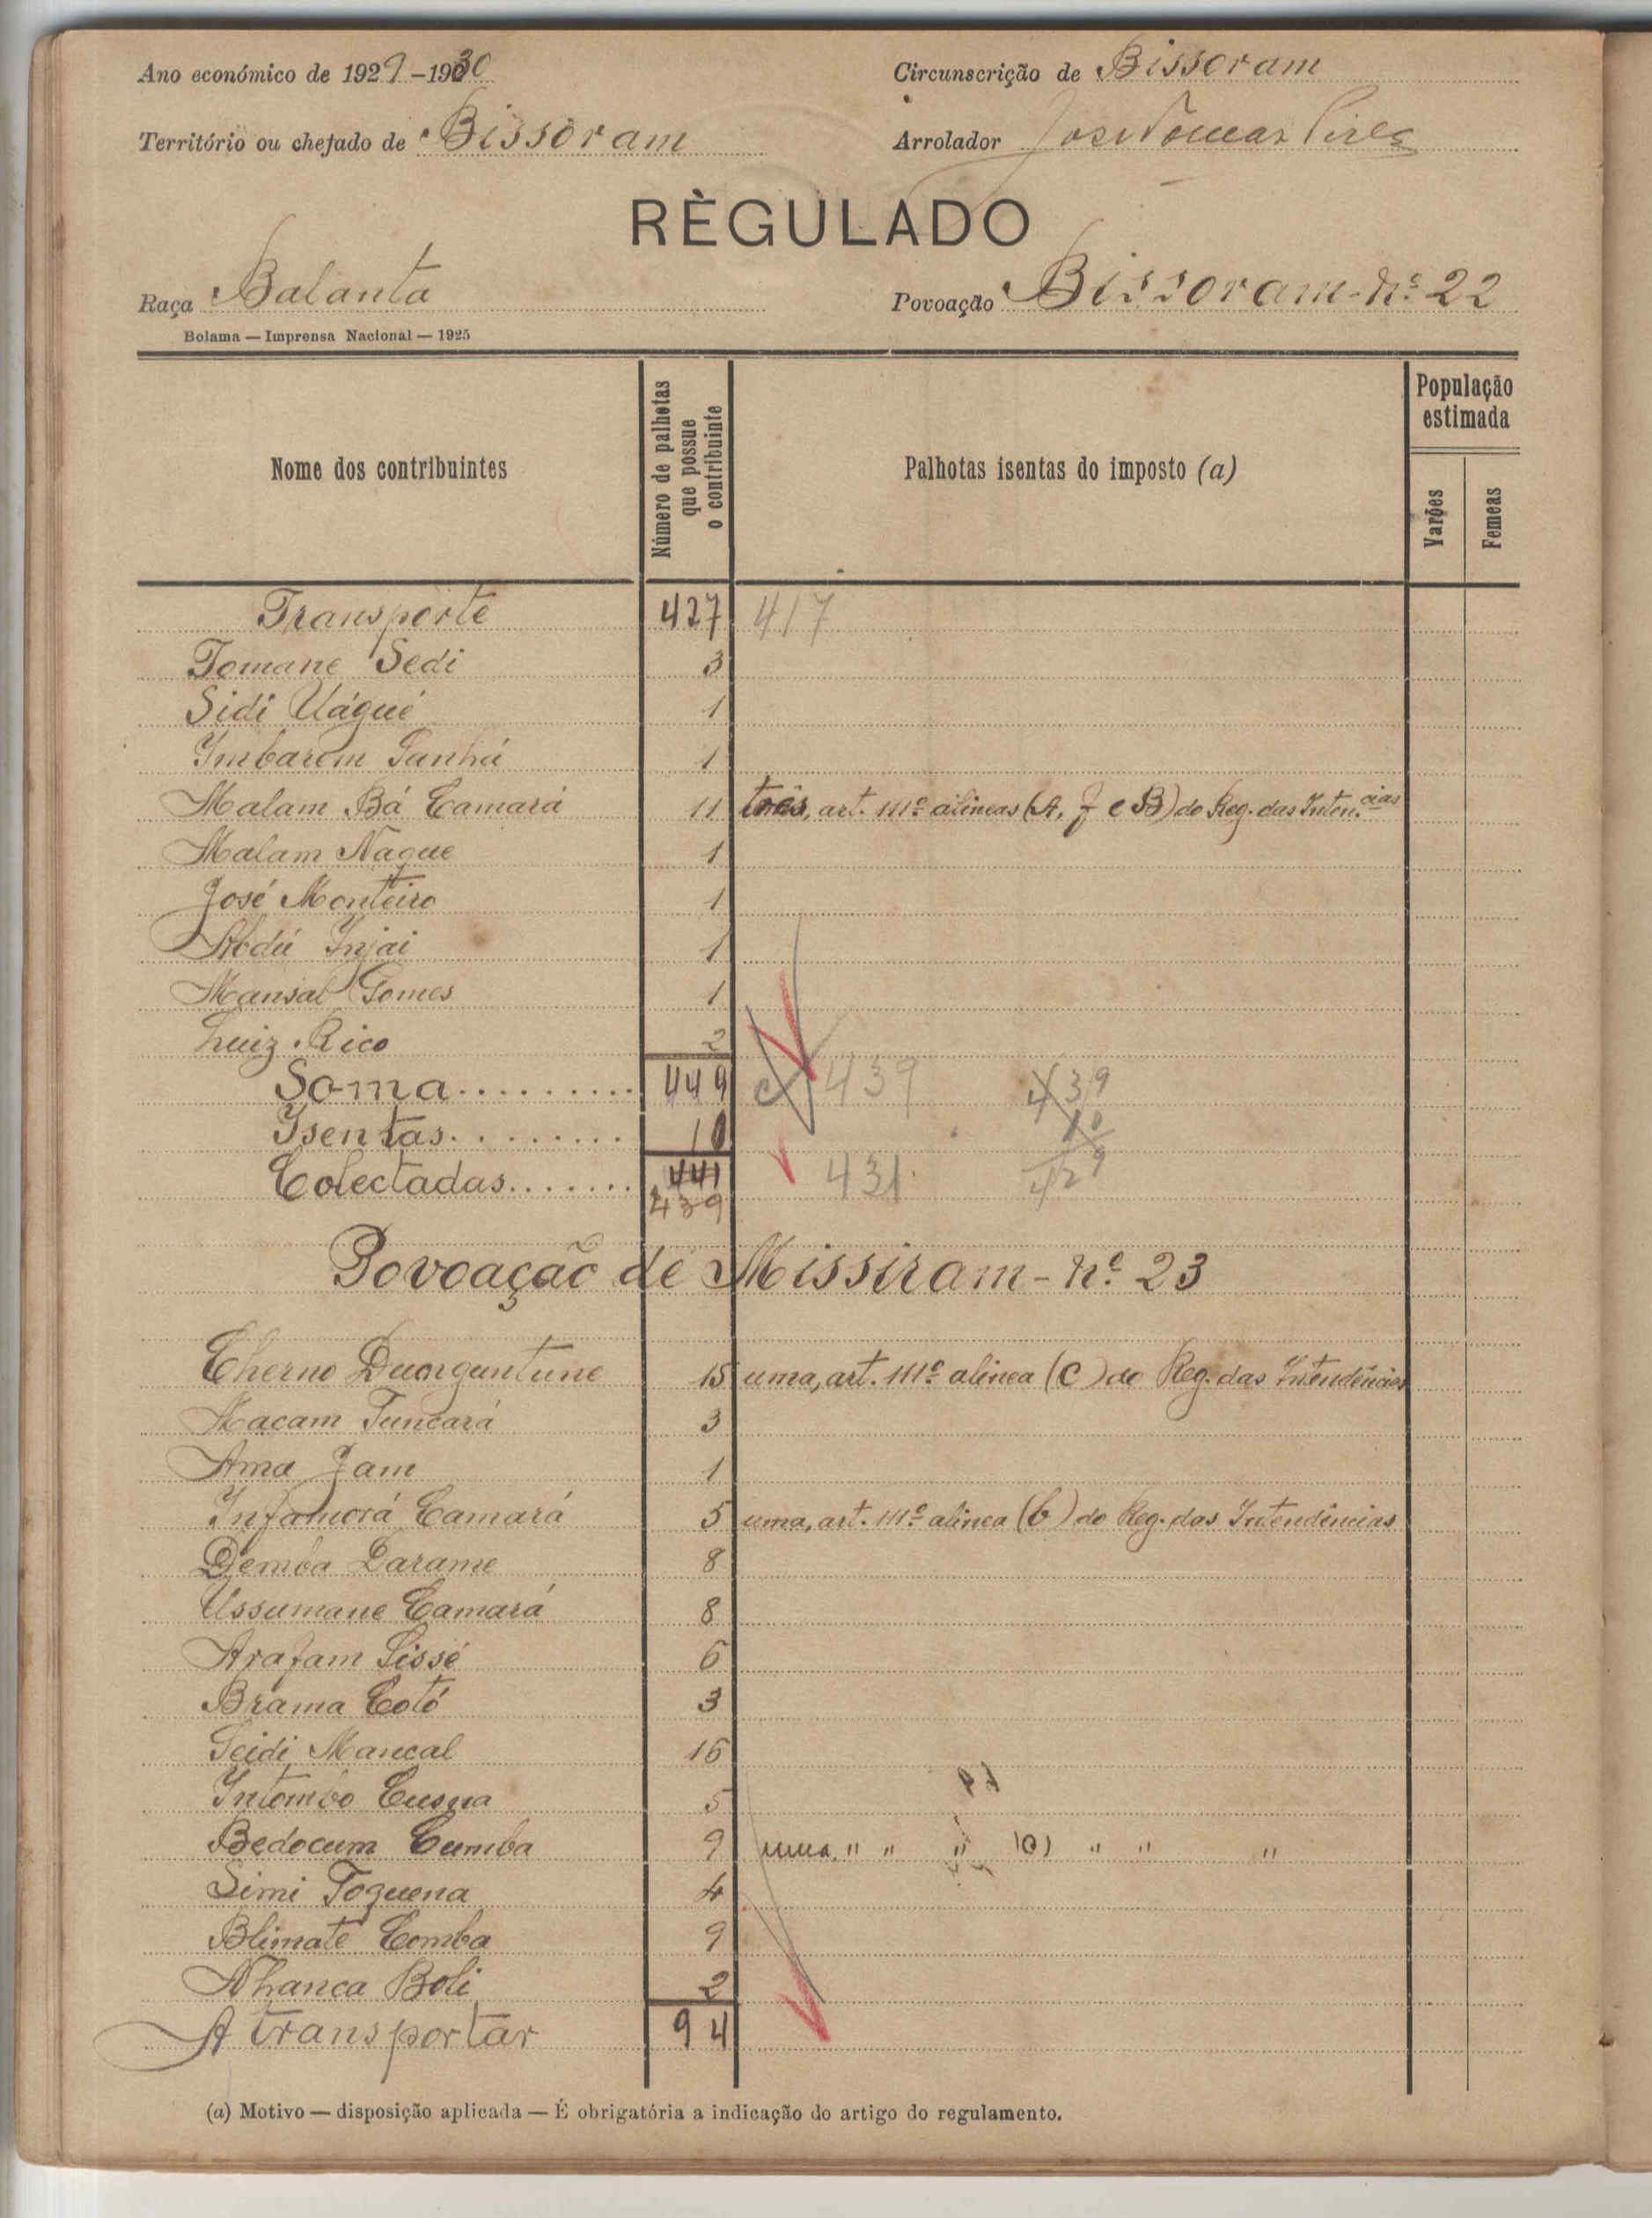 Ano económico de 1929-1930
Circunscrição de Bissoram
Território ou chefado de Bissoram
Arrolador José Tomaz Pires
RÈGULADO
Raça Balanta
Povoação Bissoram-nº 22
Bolama — Imprensa Nacional — 1925
Nome dos contribuintes
Número de palhotas que possue o contribuinte
Palhotas isentas do imposto (a)
População estimada
Varões
Femeas
Transporte 427 417
Tomane Sedi 3
Sidi Uágué 1
Imbarom Sanhá 1
Malam Bá Camará 11 três, art. 111º alineas (A, f e B) do Reg. das Inten.cias
Malam Naque 1
José Monteiro 1
Abdú Injai 1
Mansal Gomes 1
Luiz Rico 2
Soma......... 449 439 439
Isentas........ 10 10
Colectadas....... 441 431 429
439
Povoação de Missiram-nº 23
Cherno Duonguntune 15 uma, art. 111º alinea (C) do Reg. das Intendências
Macam Tuncará 3
Ama Jam 1
Infamorá Camará 5 uma, art. 111º alinea (b) do Reg. das Intendências
Demba Darame 8
Ussumane Camará 8
Arafam Sissé 6
Brama Cotó 3
Seidi Mancal 16
Intombo Cusna 5
Bedocum Cumba 9 uma, " " " (C) " " "
Simi Toguena 4
Blimate Comba 9
Nhanca Boli 2
A transportar 94
(a) Motivo — disposição aplicada — É obrigatória a indicação do artigo do regulamento.